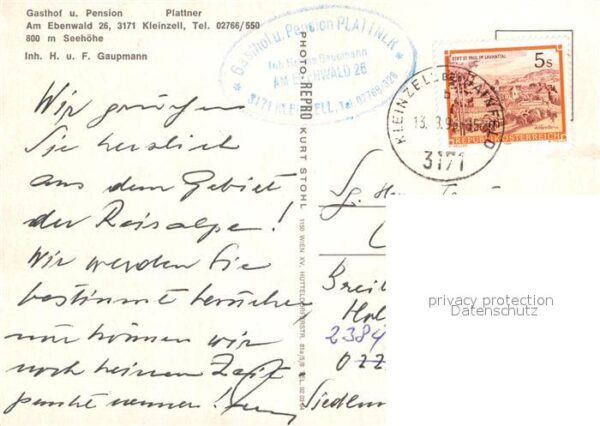 Gasthof u. Pension Plattner
Am Ebenwald 26, 3171 Kleinzell, Tel. 02766/550
800 m Seehöhe
Inh. H. u. F. Gaupmann
* Gasthof u. Pension PLATTNER *
Inh. Helene Gaupmann
AM EBENWALD 26
3171 KLEINZELL, Tel. 02766/328
PHOTO-REPRO KURT STOHL
1150 WIEN XV, HÜTTELDORFERSTR.
STIFT ST. PAUL IM LAVANTTAL
5s
REPUBLIK ÖSTERREICH
KLEINZELL BEI HAINFELD
13. 3.
3171
Wir grüßen
Sie herzlich
aus dem Gebiet
der Reisalpe!
Wir werden Sie
bestimmt besuchen
nur können wir
noch keinen Zeit
punkt nennen!
Sg.
Breit
2384
022
Siedlern
privacy protection
Datenschutz